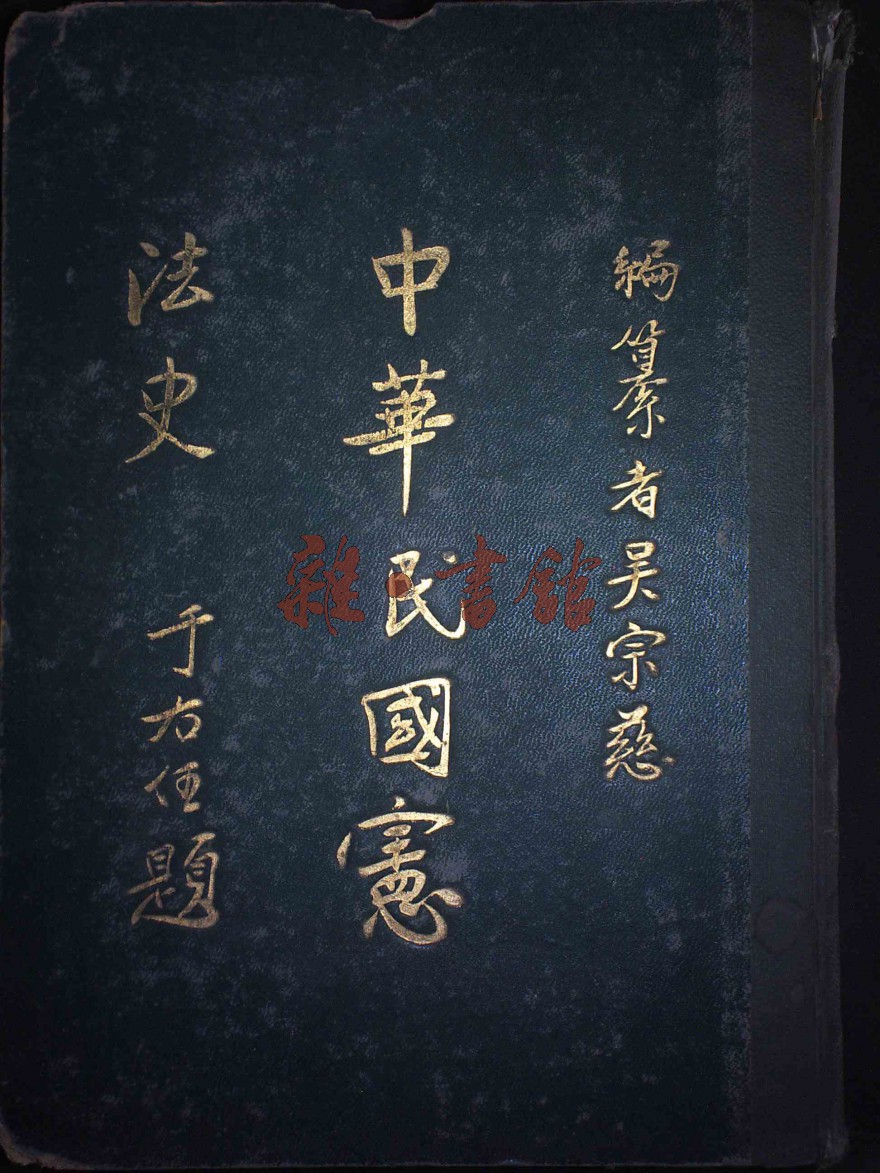 編纂者吳宗慈
中華民國憲
法史
于右任題
雜·書館